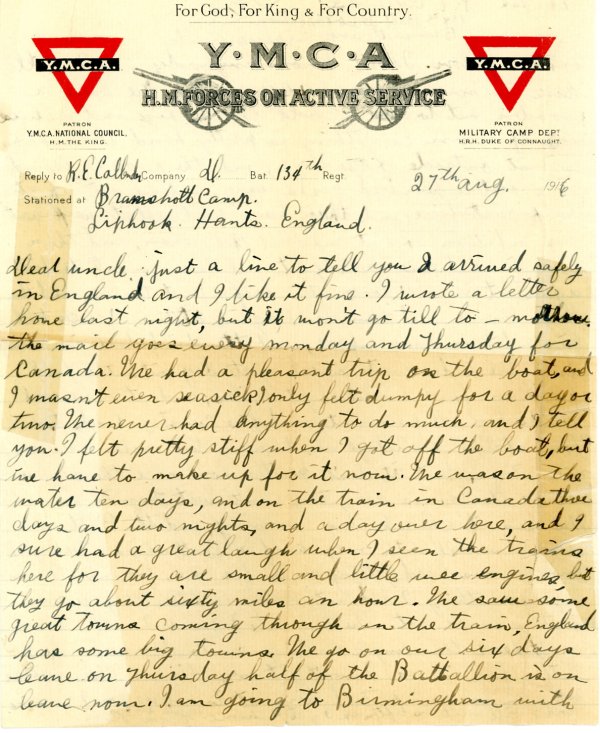 For God, For King & For Country.
Y·M·C·A
H.M. FORCES ON ACTIVE SERVICE
Y.M.C.A.
PATRON
Y.M.C.A. NATIONAL COUNCIL,
H.M. THE KING.
Y.M.C.A.
PATRON
MILITARY CAMP DEPT
H.R.H. DUKE OF CONNAUGHT.
Reply to R.E. Company D. Bat. 134th Regt. 27th Aug. 1916
Stationed at Bramshott Camp.
Liphook. Hants. England.
Dear uncle just a line to tell you I arrived safely
in England and I like it fine. I wrote a letter
home last night, but it won't go till to-morrow.
the mail goes every monday and Thursday for
Canada. We had a pleasant trip on the boat, and
I wasn't even seasick, I only felt dumpy for a day or
two. We never had anything to do much, and I tell
you. I felt pretty stiff when I got off the boat, but
we have to make up for it now. We was on the
water ten days, and on the train in Canada three
days and two nights, and a day over here, and I
sure had a great laugh when I seen the trains
here for they are small and little wee engines, but
they go about sixty miles an hour. We saw some
great towns coming through in the train, England
has some big towns. We go on our six days
leave on Thursday half of the Battallion is on
leave now. I am going to Birmingham with